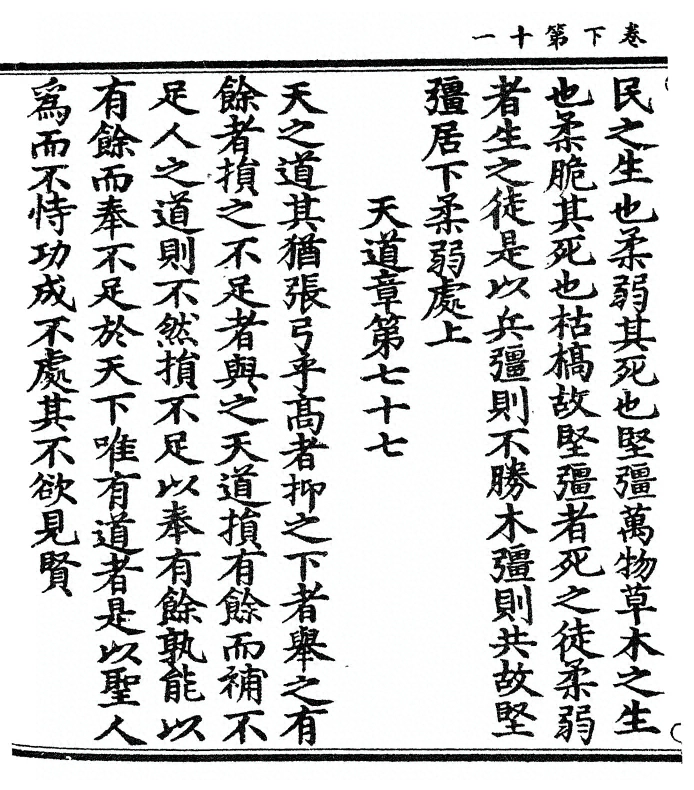 卷下第十一
民之生也柔弱其死也堅彊萬物草木之生
也柔脆其死也枯槁故堅彊者死之徒柔弱
者生之徒是以兵彊則不勝木彊則共故堅
彊居下柔弱處上
天道章第七十七
天之道其猶張弓乎高者抑之下者舉之有
餘者損之不足者與之天道損有餘而補不
足人之道則不然損不足以奉有餘孰能以
有餘而奉不足於天下唯有道者是以聖人
爲而不恃功成不處其不欲見賢